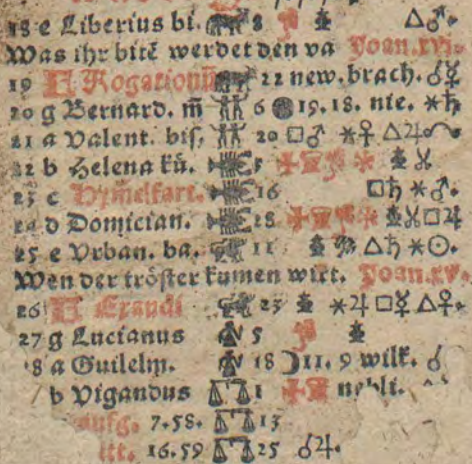 18 e Liberius bi. 8 △♂.
Was ihr bitt werdet den va Joan.xvi.
19 Rogationū 22 new.brach. ☌☿
20 g Bernard. m̄ 6 19.18. nie. ⚹♄
21 a Valent. bis. 20 □♂ ⚹♀ △♃
22 b Helena kü. 5
23 c Hym̄elfart. 16 □♄ ⚹♂.
24 d Domician. 28 □♃
25 e Vrban. ba. 11 △♄ ⚹☉.
Wen der tröster kumen wirt. Joan.xv.
26 Exaudi 23 ⚹♃ □☿ △♀.
27 g Lucianus 5
8 a Guilelm. 18 ☽11. 9 wilk. ☌
b Vigandus 1 nebli.
aufg. 7.58. 13
tt. 16.59 25 ☌♃.